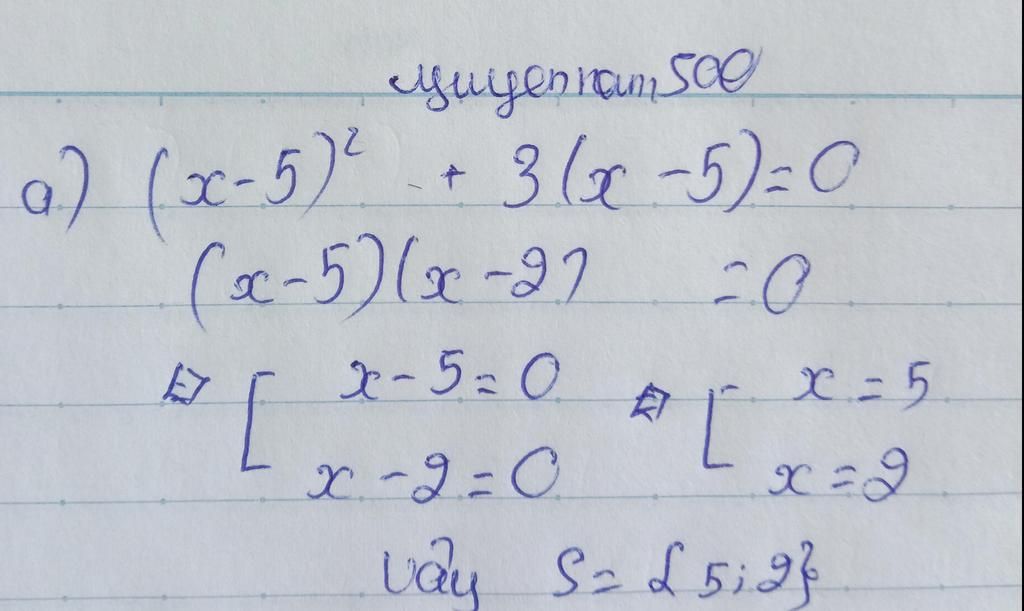 nguyennam500
a) (x-5)² + 3(x-5)=0
(x-5)(x-2) =0
⇔ [ x-5=0 ⇔ [ x=5
x-2=0 x=2
Vậy S={5;2}